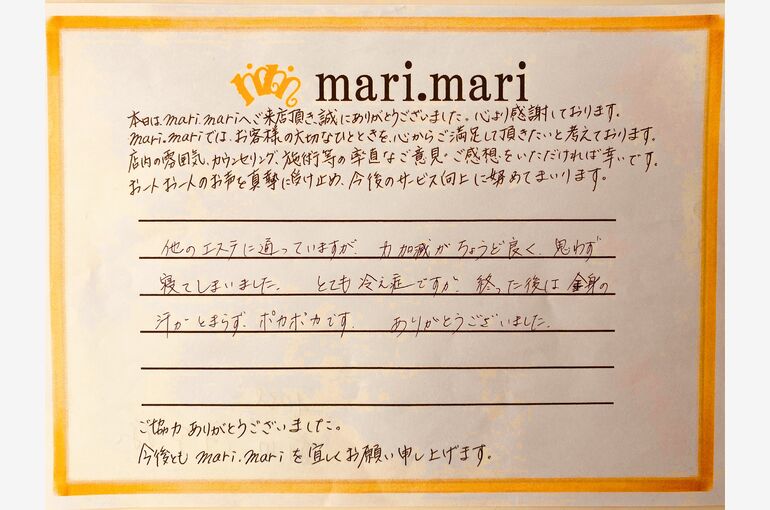 mari mari.mari
本日はmari.mariへご来店頂き誠にありがとうございました。心より感謝しております。
mari.mariでは、お客様の大切なひとときを、心からご満足して頂きたいと考えております。
店内の雰囲気、カウンセリング、施術等の率直なご意見・ご感想をいただければ幸いです。
お一人お一人のお声を真摯に受け止め、今後のサービス向上に努めてまいります。
他のエステに通っていますが、力加減がちょうど良く、思わず
寝てしまいました。 とても冷え症ですが、終った後は全身の
汗がとまらず、ポカポカです。 ありがとうございました。
ご協力ありがとうございました。
今後とも mari.mari を宜しくお願い申し上げます。